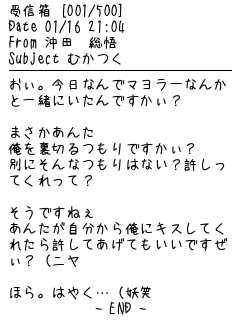 受信箱 [001/500]
Date 01/16 21:04
From 沖田　総悟
Subject むかつく
おい。今日なんでマヨラーなんか
と一緒にいたんですかぃ？
まさかあんた
俺を裏切るつもりですかぃ？
別にそんなつもりはない？許しっ
てくれって？
そうですねぇ
あんたが自分から俺にキスしてく
れたら許してあげてもいいですぜ
ぃ？（ニヤ
ほら。はやく…（妖笑
- END -